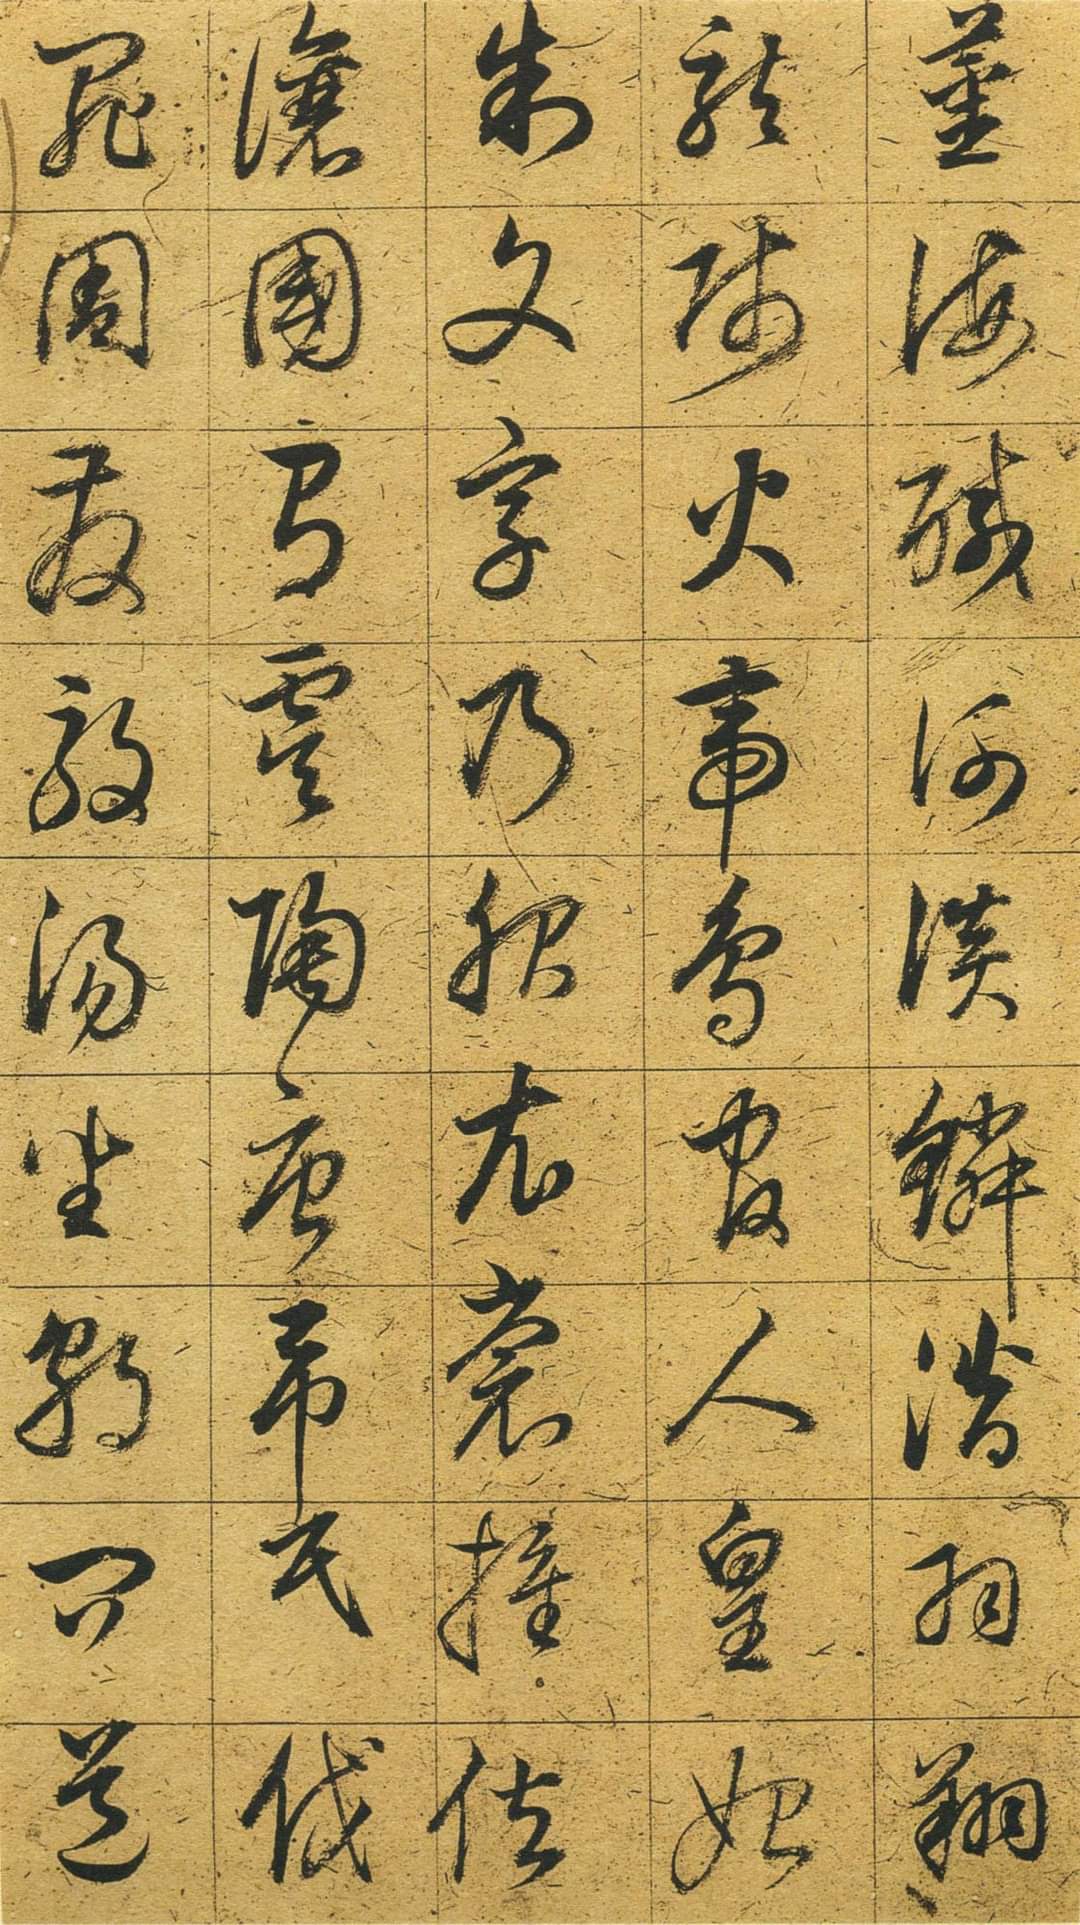 薑海鹹河淡鱗潛羽翔
龍師火帝鳥官人皇始
制文字乃服衣裳推位
讓國有虞陶唐吊民伐
罪周發殷湯坐朝問道